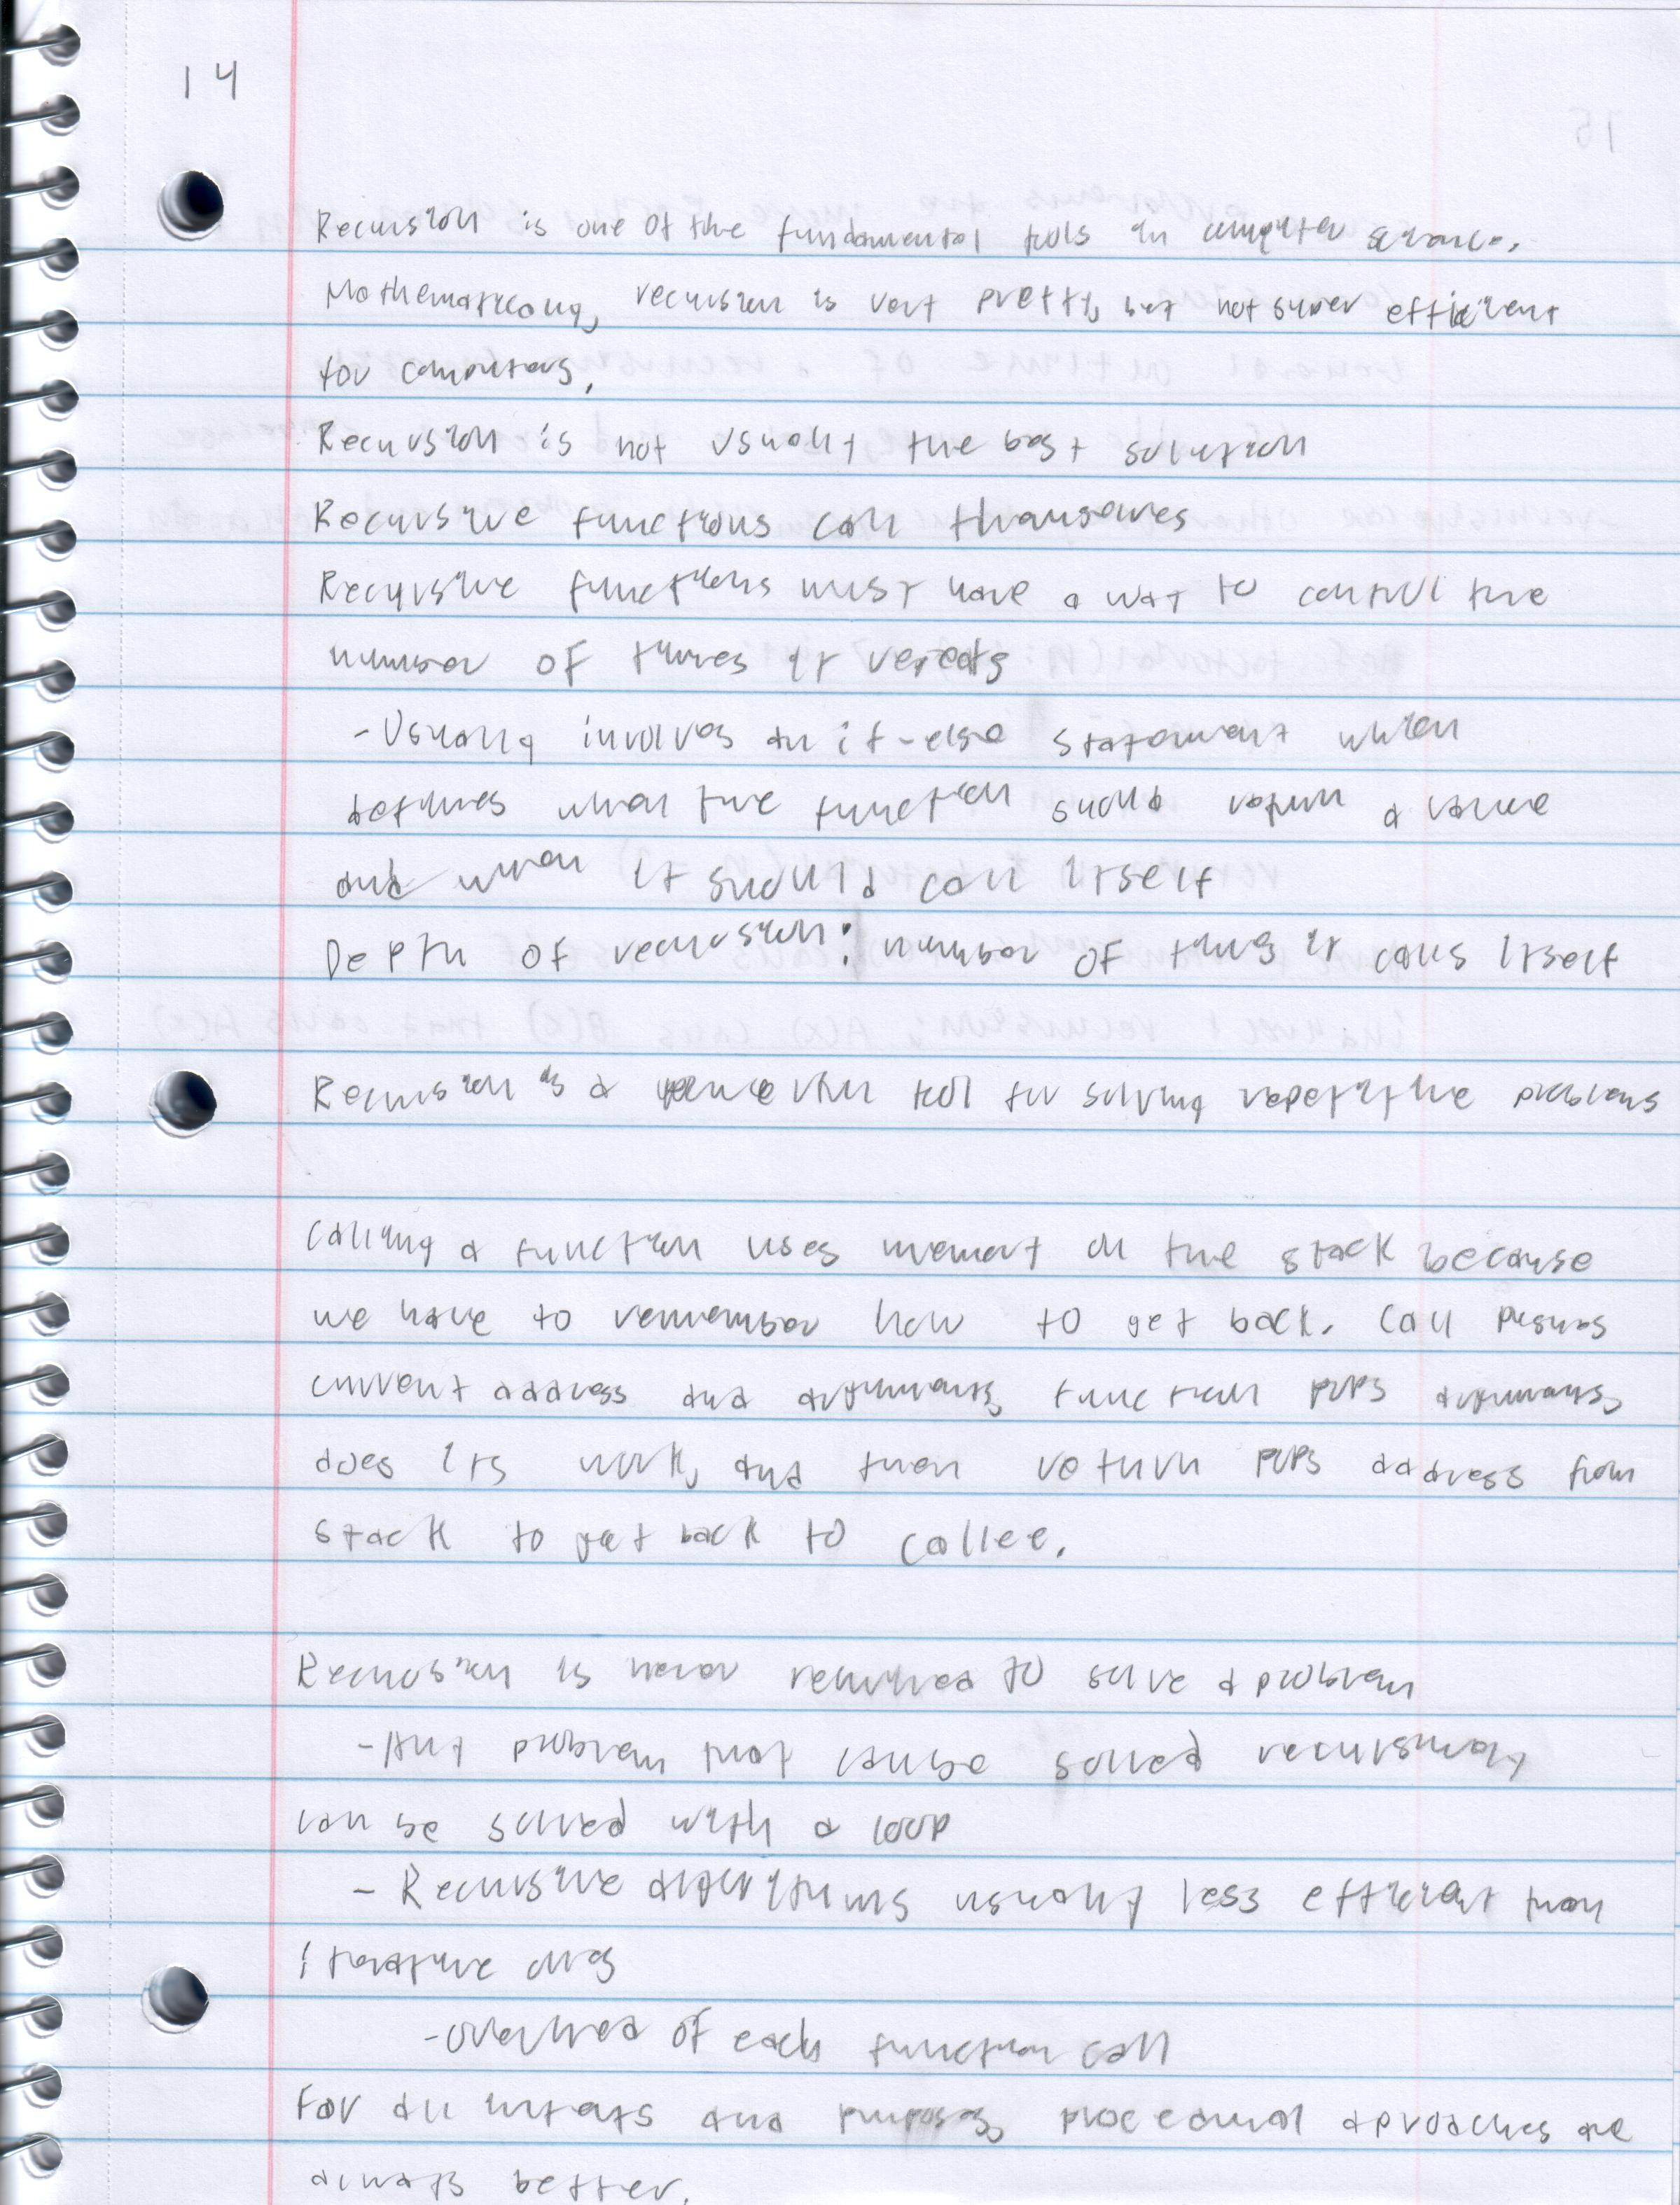 14
Recursion is one of the fundamental tools in computer science.
Mathematically, recursion is very pretty, but not super efficient
for computers.
Recursion is not usually the best solution
Recursive functions call themselves
Recursive functions must have a way to control the
number of times it repeats
-Usually involves an if-else statement which
defines when the function should return a value
and when it should call itself
Depth of recursion: number of times it calls itself
Recursion is a tool for solving repetitive problems
Calling a function uses memory on the stack because
we have to remember how to get back. Call pushes
current address and arguments, function pops arguments,
does its work, and then return pops address from
stack to get back to callee.
Recursion is never required to solve a problem
-Any problem that can be solved recursively
can be solved with a loop
- Recursive algorithms usually less efficient than
iterative ones
-overhead of each function call
For all intents and purposes, procedural aproaches are
always better.